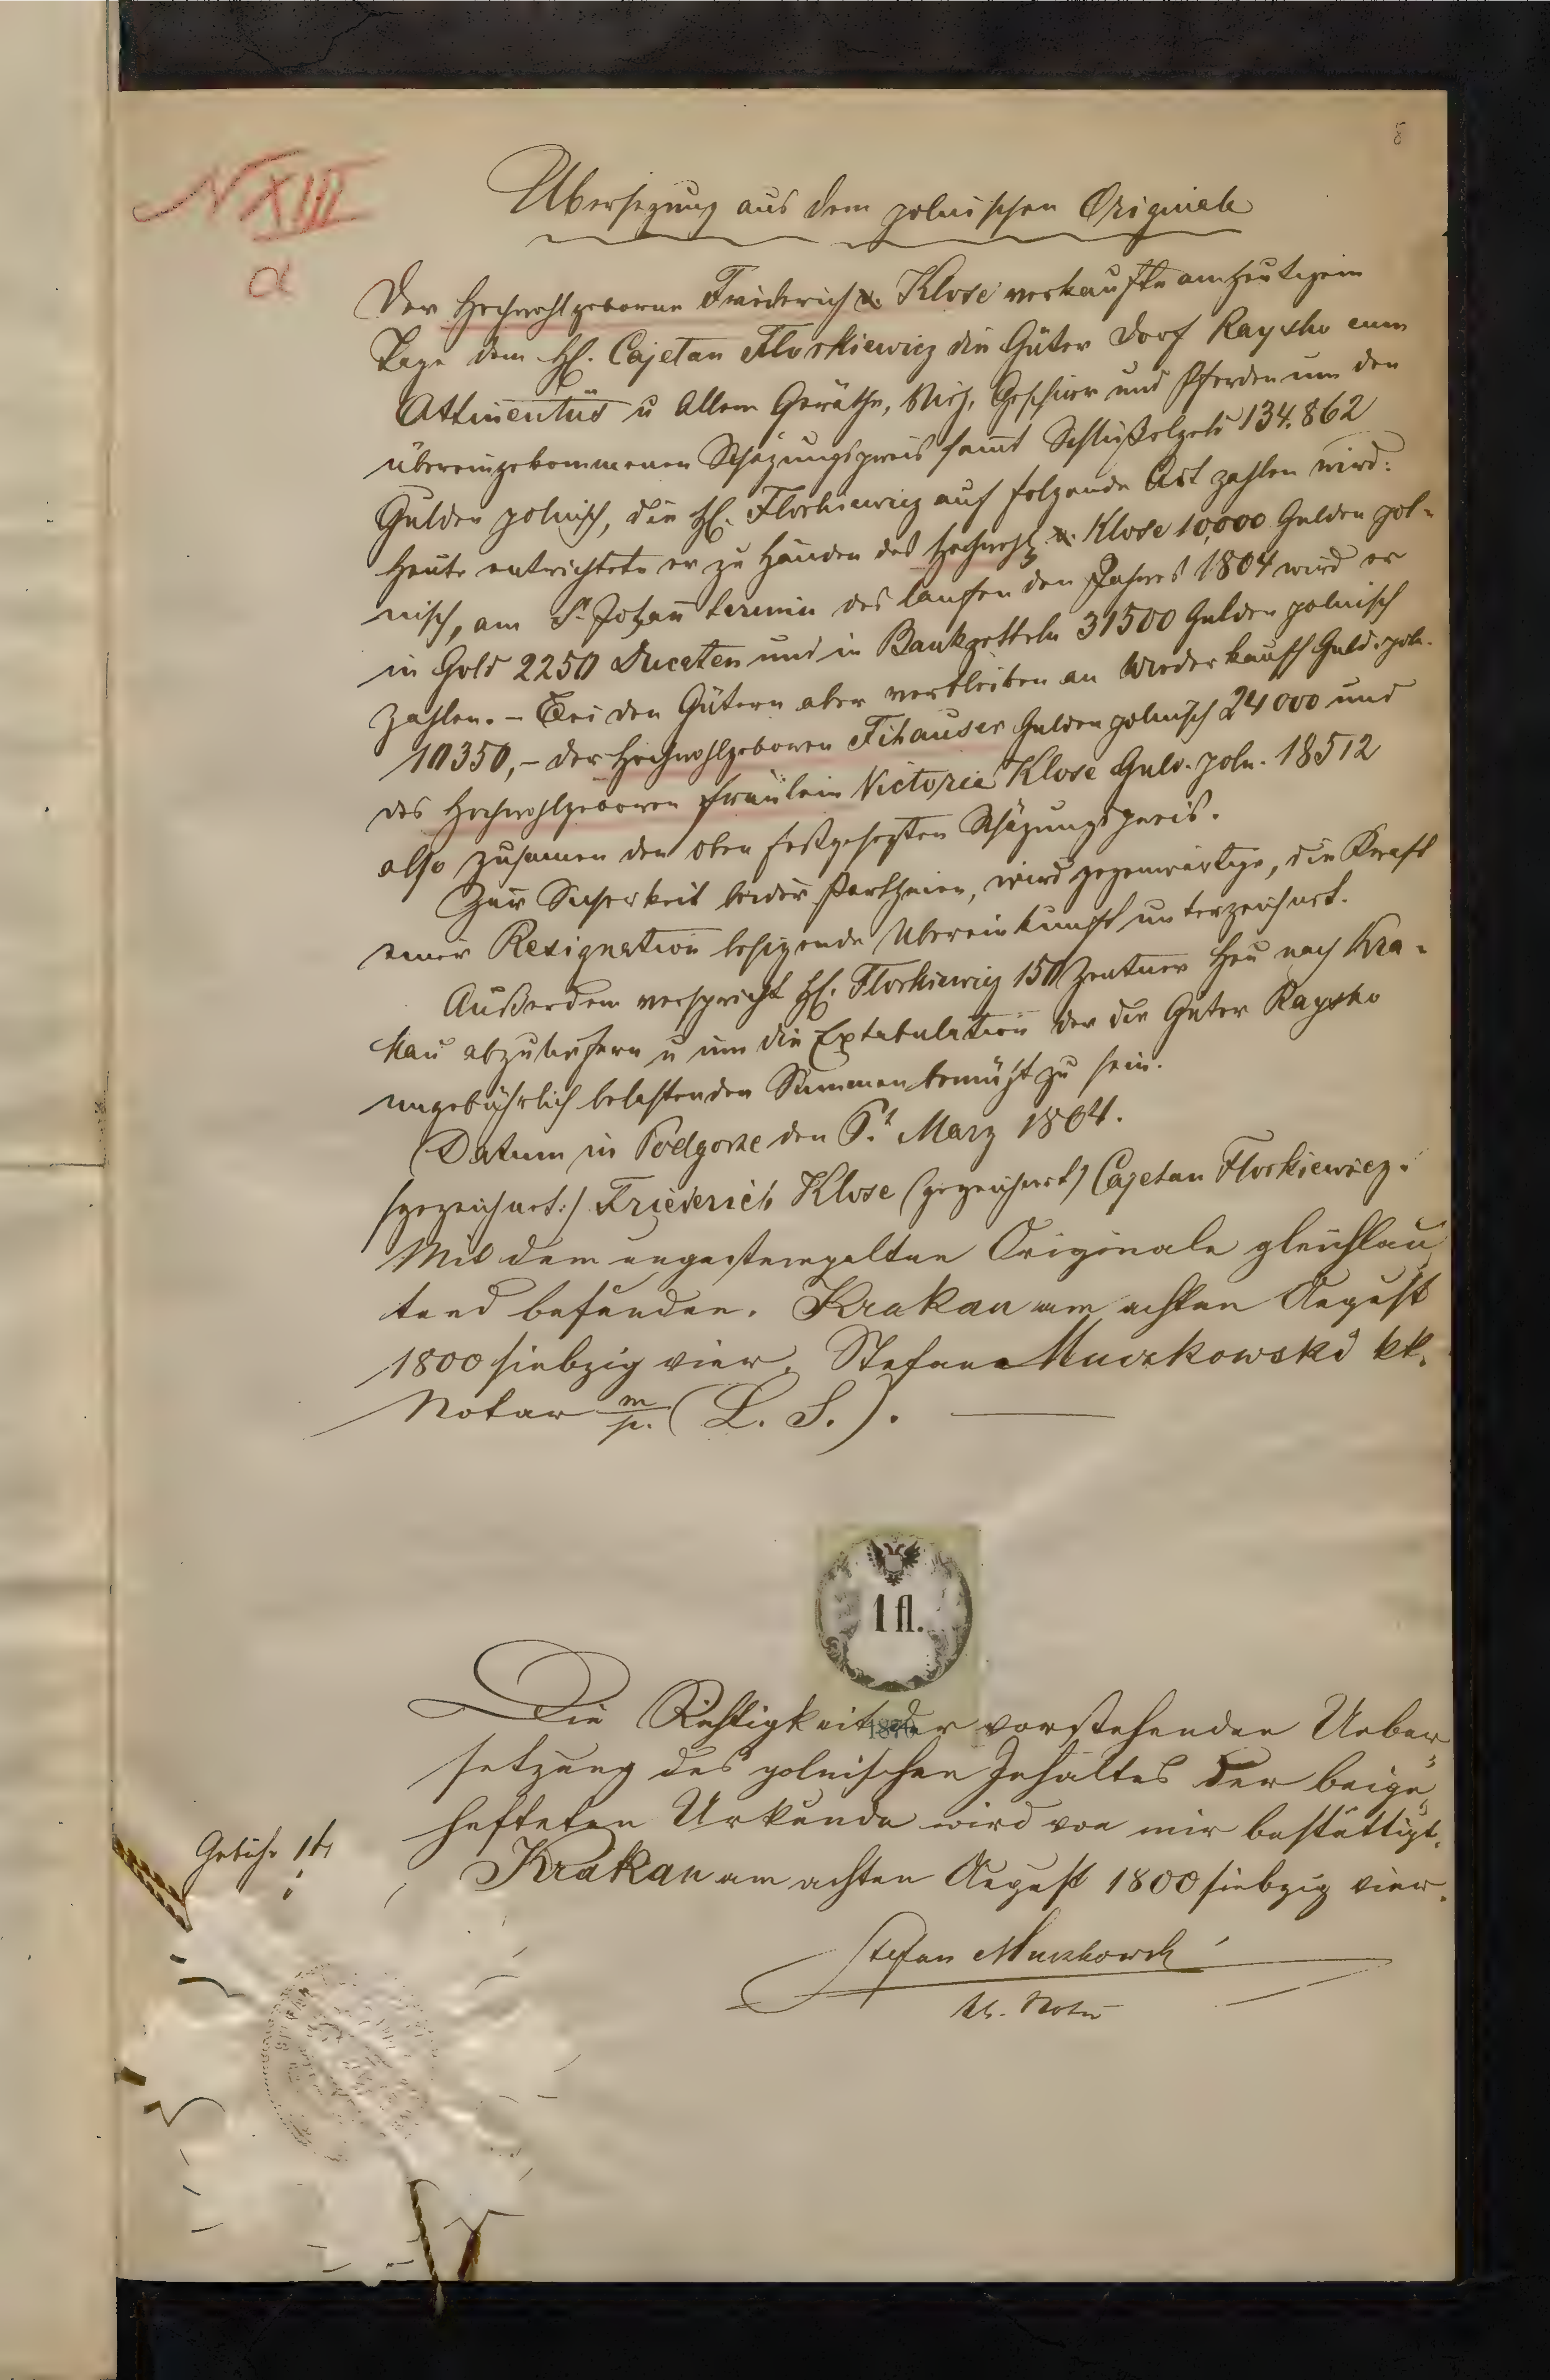 8
N XIII
a
Übersezung aus dem polnischen Originale
Der Hochwohlgeborne Friederich v. Klose verkaufte am heutigen
Tage dem H. Cajetan Florkiewicz die Güter Dorf Raysko cum
Attinentüs u Allem Geräthe, Vieh, Geschirr und Pferden um den
übereingekommenen Schäzungspreis sammt Schlüßelgeld 134.862
Gulden polnisch, die H. Florkiewicz auf folgende Art zahlen wird:
Heute entrichtete er zu Händen des Hochwohlg v. Klose 10,000 Gulden pol-
nisch, am St. Johann termin des laufenden Jahres 1804 wird er
in Gold 2250 Ducaten und in Bankzetteln 31500 Gulden polnisch
zahlen. – Bei den Gütern aber verbleiben an Wiederkauff Guld. poln.
10350,– der Hochwohlgeboren Fihauser Gulden polnisch 24000 und
des Hochwohlgeboren Fräulein Victoria Klose Guld. poln. 18512
also zusamen den oben festgesezten Schäzungspreis.
Zur Sicherkeit beider Partheien, wird gegenwärtige, die Kraft
einer Resignation besizende Übereinkunft unterzeichnet.
Außerdem verspricht H. Florkiewicz 150 Zentner Heu nach Kra-
kau abzuliefern u um die Extabulation der die Güter Raysko
ungebührlich belastenden Summen bemüht zu sein.
Datum in Podgorze den März 1804.
(gezeichnet:) Friederich Klose (gezeichnet) Cajetan Florkiewicz.
Mit dem ungestempelten Originale gleichlau
tend befunden. Krakau am achten August
1800 siebzig vier. Stefan Muczkowski kk.
Notar m/p. (L. S.).
1 fl.
1870
Die Richtigkeit der vorstehenden Ueber
setzung des polnischen Inhaltes der beige
hefteten Urkunde wird von mir bestättigt.
Gebühr 1 fl
Krakau am achten August 1800 siebzig vier.
Stefan Muczkowski
kk. Notar